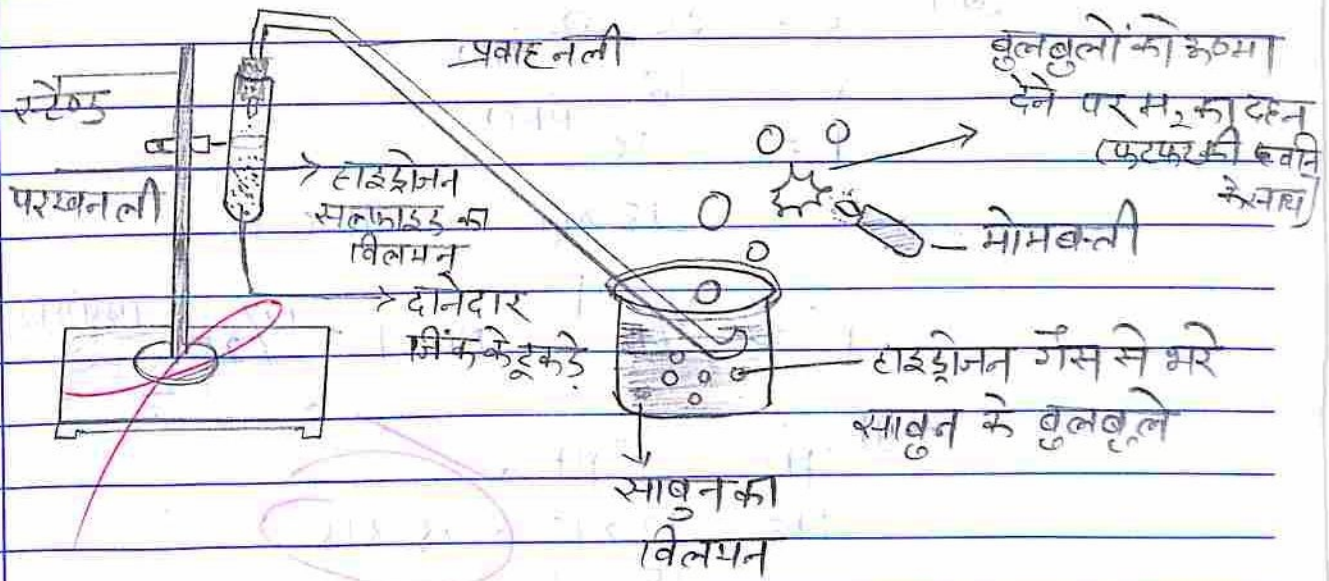 प्रवाह नली
स्टैण्ड
परखनली
हाइड्रोजन
सल्फाइड का
विलयन
दानेदार
जिंक के टूकड़े
बुलबुलों को ऊष्मा
देने पर H₂ का दहन
(फटफट की ध्वनि
के साथ)
मोमबत्ती
हाइड्रोजन गैस से भरे
साबुन के बुलबुले
साबुन का
विलयन